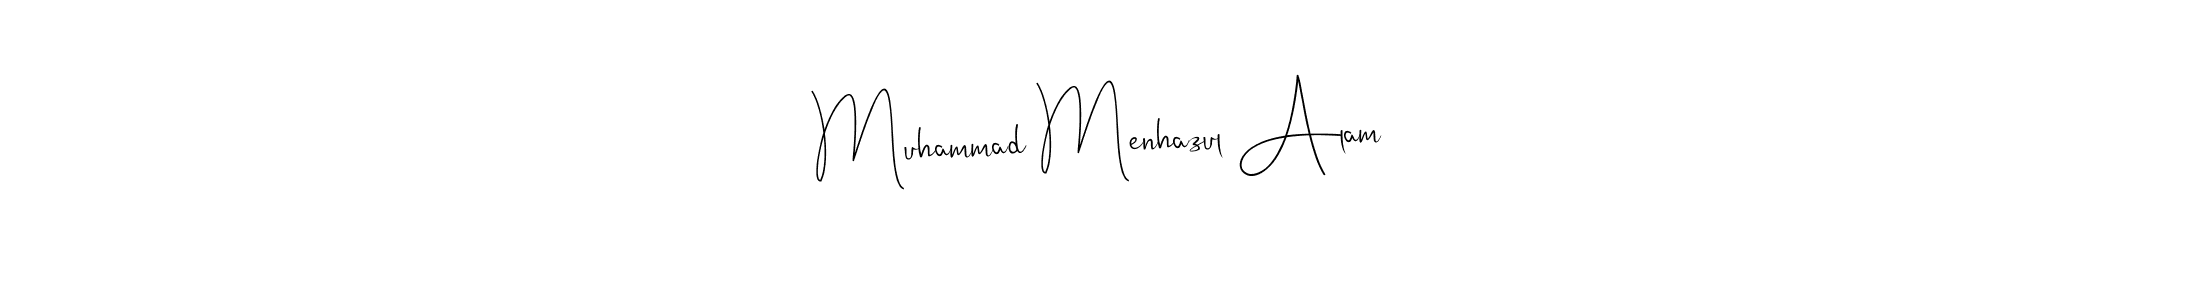 Muhammad Menhazul Alam